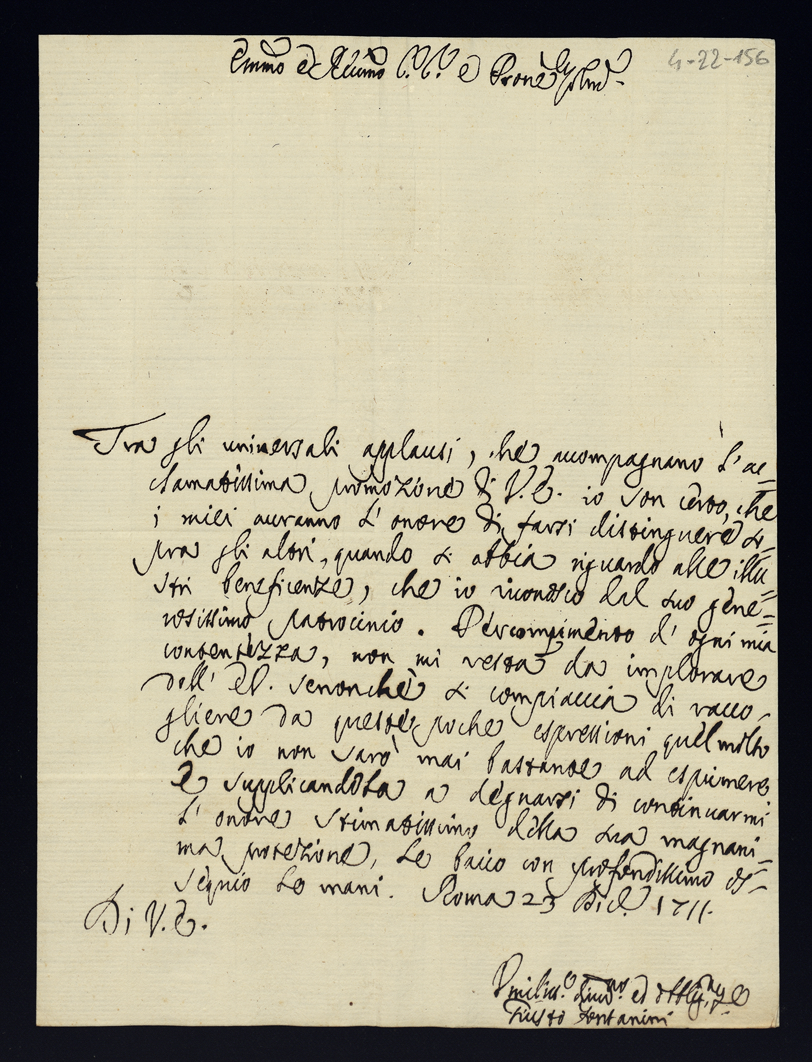 Emmo e Rmo S.r S.r e Prone
4-22-156
Tra gli universali applausi, che accompagnano l'ac=
clamatissima promozione di V.E. io son certo, che
i miei auranno l'onore di farsi distinguere so=
pra gli altri, quando si abbia riguardo alle illu=
stri beneficenze, che io riconosco dal suo gene=
rosissimo patrocinio. Per compimento d'ogni mia
contentezza, non mi resta da implorare
dall' E.V. senonchè si compiaccia di racco,
gliere da queste poche espressioni quel molto
che io non sarò mai bastante ad esprimere
E supplicandola a degnarsi di continuarmi
l'onore stimatissimo della sua magnani=
ma protezione, Le bacio con profondissimo os=
sequio le mani. Roma 23 Dic. 1711.
Di V.E.
Vmiliss.o Diuo.mo ed obblig.mo
Giusto Fontanini